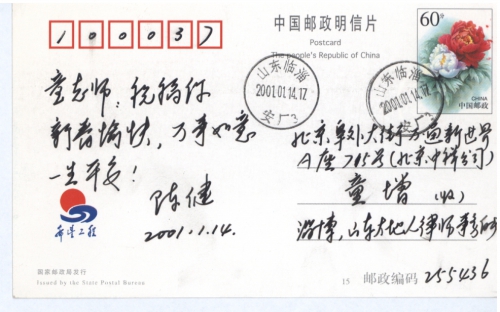 100037
中国邮政明信片
Postcard
The people's Republic of China
60分
CHINA
中国邮政
山东临淄
2001.01.14.17
安厂3
山东临淄
2001.01.14.17
安厂3
童老师：祝福你
新春愉快，万事如意
一生平安！
陈健
2001.1.14.
希望工程
北京阜外大街方圆新世界
A座705号(北京中祥公司)
童增 (收)
淄博，山东大地人律师事务所
国家邮政局发行
Issued by the State Postal Bureau
15 邮政编码 255436